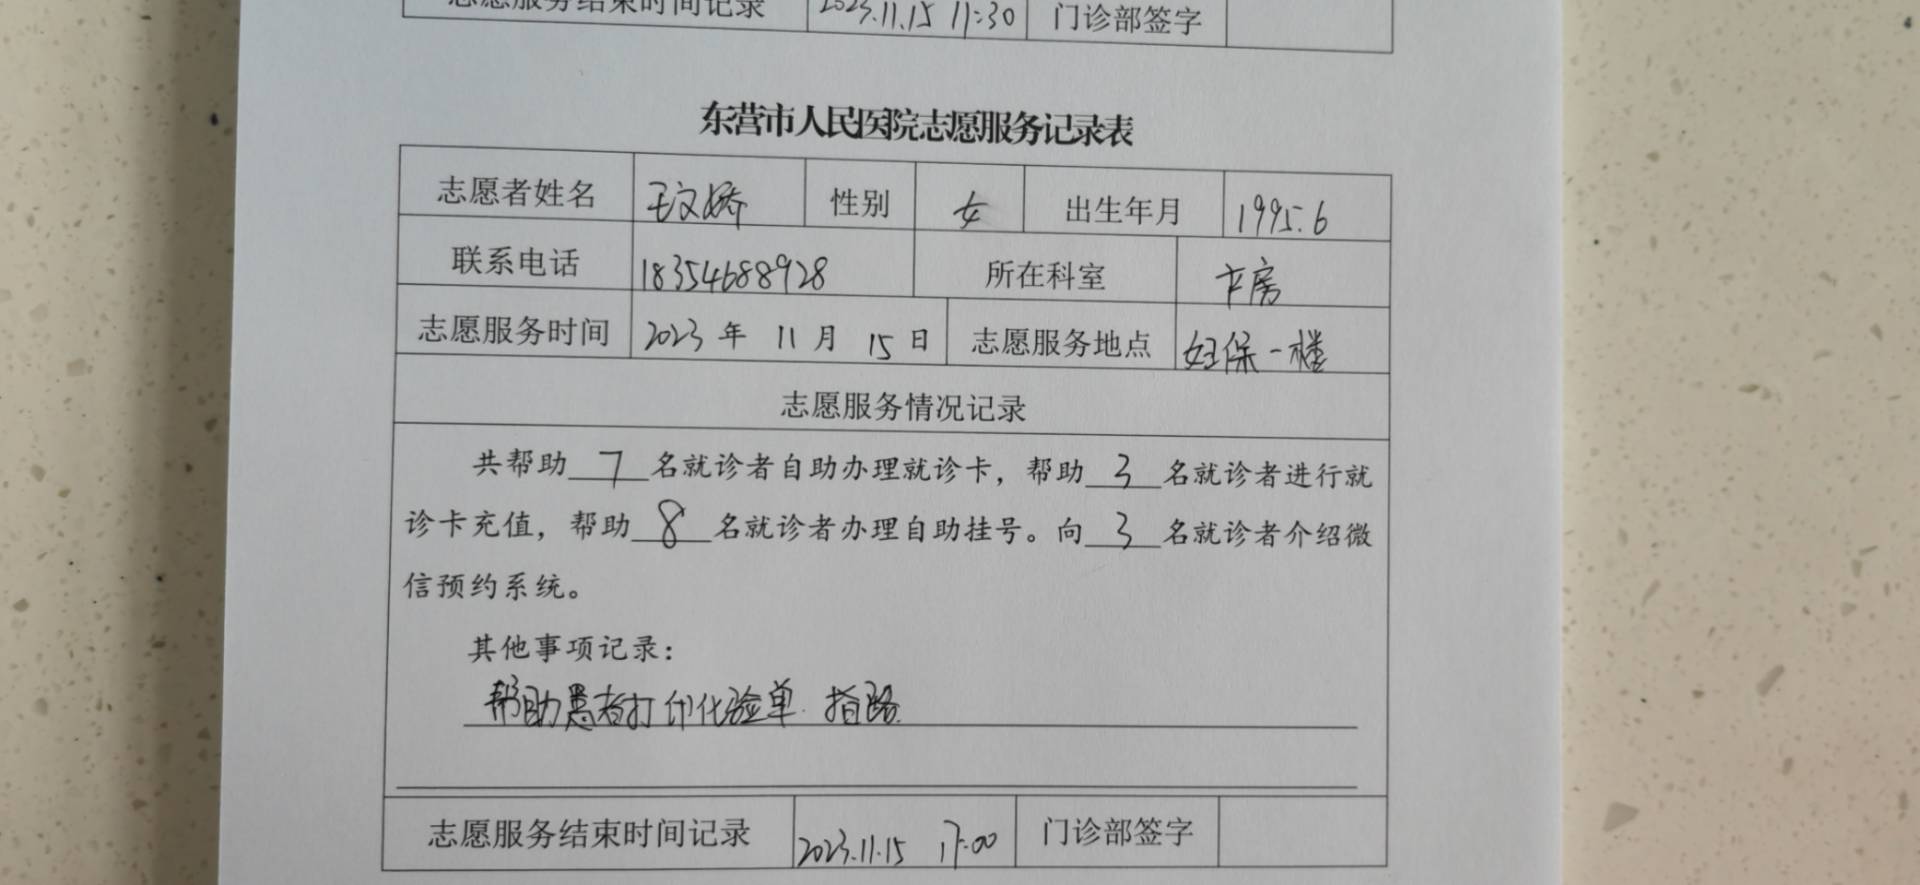 志愿服务结束时间记录 2023.11.15 11:30 门诊部签字
东营市人民医院志愿服务记录表
志愿者姓名 王文娇 性别 女 出生年月 1995.6
联系电话 18354688928 所在科室 卡房
志愿服务时间 2023 年 11 月 15 日 志愿服务地点 妇保一楼
志愿服务情况记录
共帮助 7 名就诊者自助办理就诊卡，帮助 3 名就诊者进行就
诊卡充值，帮助 8 名就诊者办理自助挂号。向 3 名就诊者介绍微
信预约系统。
其他事项记录：
帮助患者打印化验单. 指路.
志愿服务结束时间记录 2023.11.15 17:00 门诊部签字